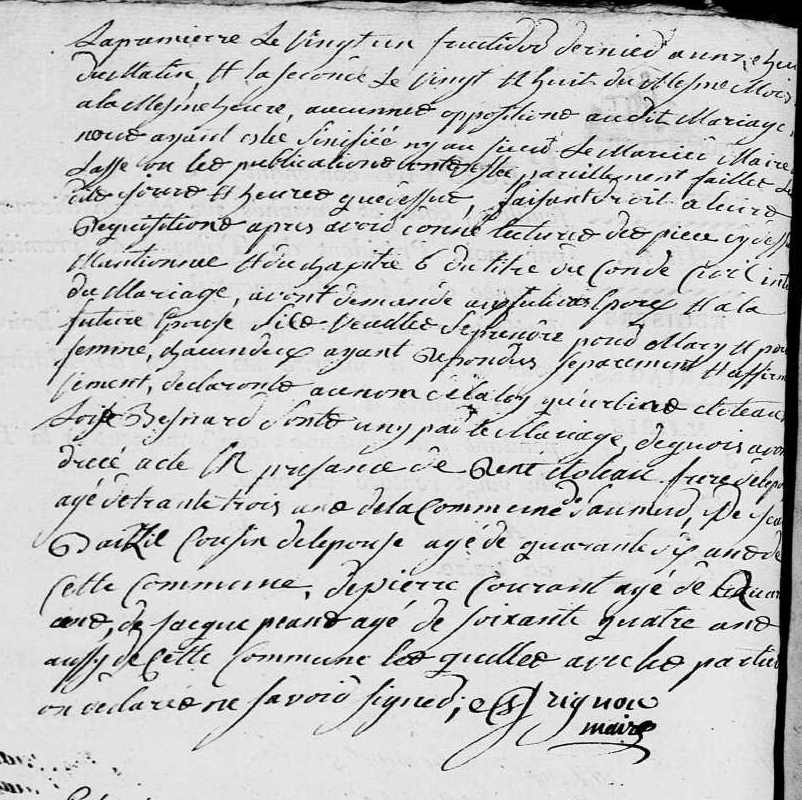 La premierre Le vingt un fructidor dernier a unze heu
du Matin, Et la seconde Le vingt Et huit du Mesme Mois
a la Mesme heure, aucunne opposition audit Mariage
nous ayant estée sinifiée ny au Le Maire
Lasse ou les publications parillement faittes Le
dits jours Et heures que dessus, faisant droit a leurs
Requisitions apres avoir donné lecture des piece cy dess
Mantionnée Et du chapitre 6 du titre du Conde Civil inti
du Mariage, avont demandé au futur Epoux Et a la
future Epouse s'ils veulles se prendre pour Mary Et pour
femme, chacun deux ayant Repondus separement Et affirm
sement, declaronts au nom de la loy qu'urbine cloteau
Loise Besnard sonts uny par le Mariage, de quois avon
drecé acte En presance de René cloteau frere de lepo
agé de trante trois ans de la Commune de Saumur, De
Cousin de lepouse agé de quarante six ans de
Cette Commune, de pierre Courant agé de
ans, de Jacque peans agé de soixante quatre ans
aussy de Cette Commune les quelles avec les partie
on declarés ne savoir signer;
maire